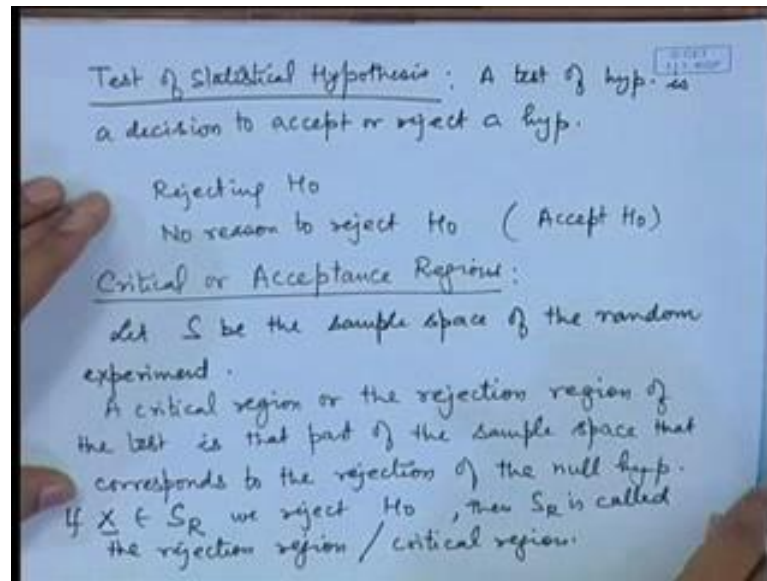 Test of Statistical Hypothesis : A test of hyp. is
a decision to accept or reject a hyp.
Rejecting Ho
No reason to reject Ho ( Accept Ho)
Critical or Acceptance Regions :
Let S be the sample space of the random
experiment.
A critical region or the rejection region of
the test is that part of the sample space that
corresponds to the rejection of the null hyp.
If X ∈ S_R we reject Ho , then S_R is called
the rejection region / critical region.